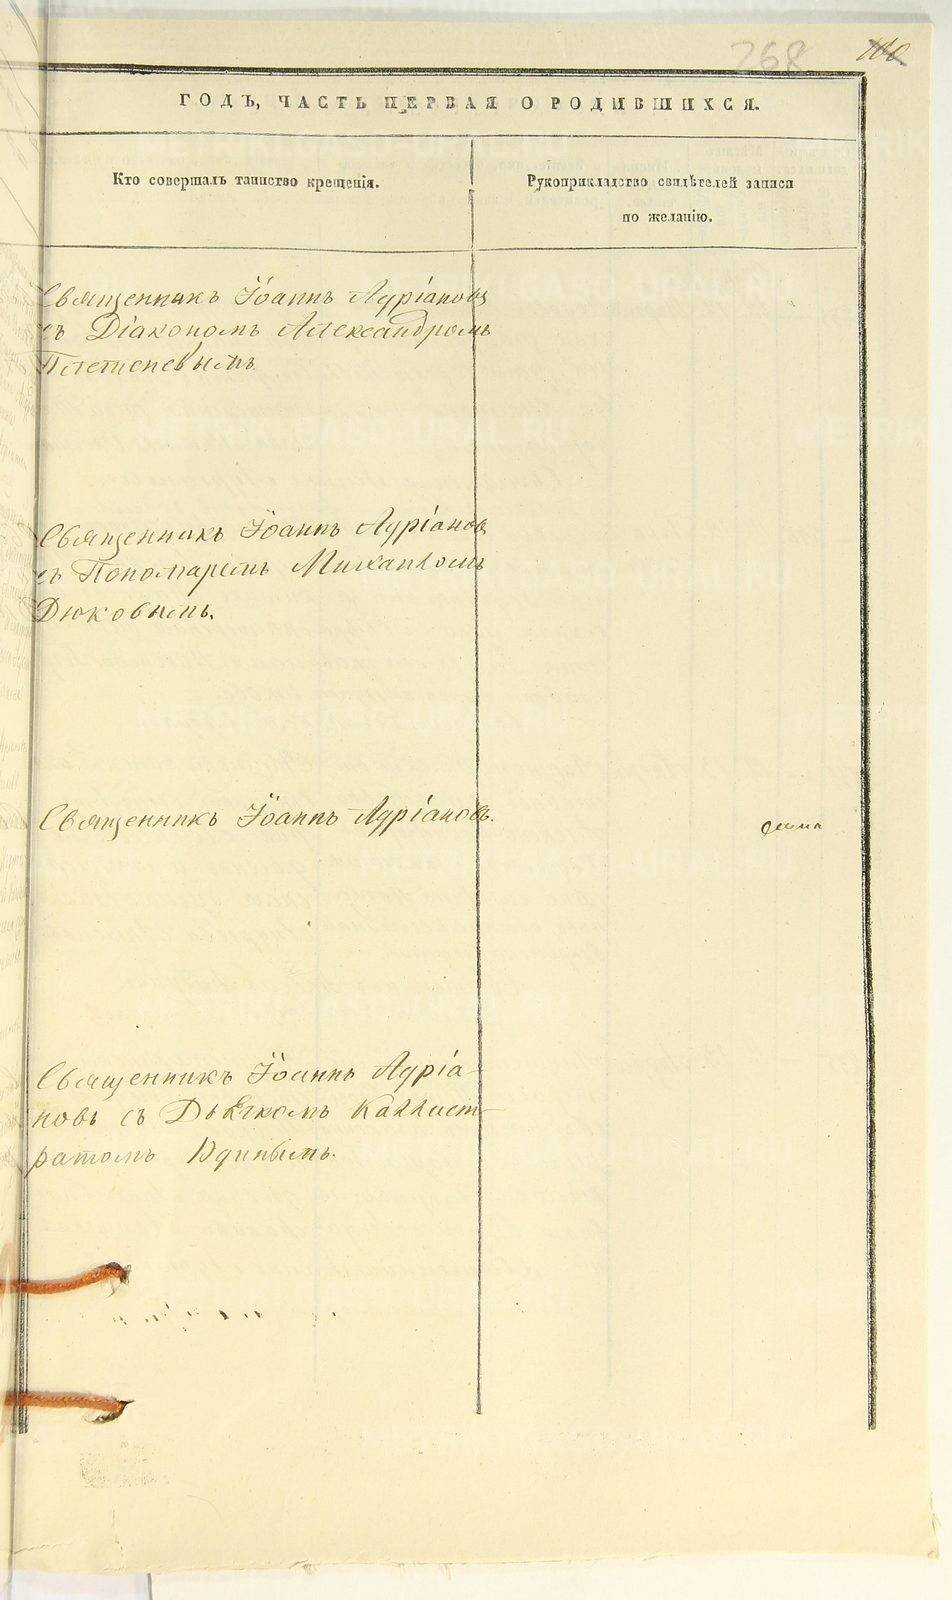 268
ГОДЪ, ЧАСТЬ ПЕРВАЯ О РОДИВШИХСЯ.
Кто совершалъ таинство крещенія.
Рукоприкладство свидѣтелей записи
по желанію.
Священникъ Іоаннъ Адріановъ
съ Діакономъ Александромъ
Плетеневымъ
Священникъ Іоаннъ Адріановъ
съ Пономаремъ Михаиломъ
Дюковымъ.
Священникъ Іоаннъ Адріановъ.
Священникъ Іоаннъ Адріа-
новъ съ Дьячкомъ Каллист-
ратомъ Юдинымъ.
METRIKI.GASO-URAL.RU